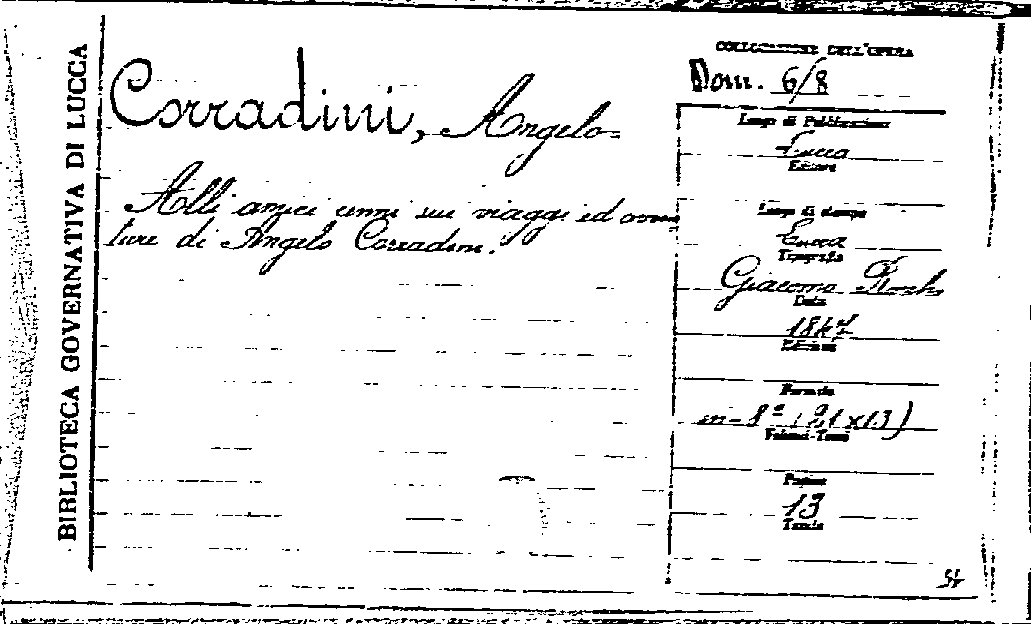 BIBLIOTECA GOVERNATIVA DI LUCCA
Corradini, Angelo=
Alli amici cenni sui viaggi ed avven
ture di Angelo Corradini.
COLLOCAZIONE DELL'OPERA
Dom. 6/8
Luogo di Pubblicazione
Lucca
Editore
Luogo di stampa
Lucca
Tipografo
Giacomo
Data
1847
Edizione
Formato
in-8º (21x13)
Volumi-Tomi
Pagine
13
Tavole